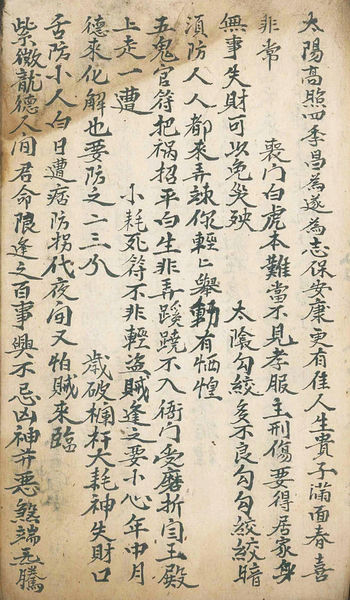 太陽高照四季昌為遂為志保安康更有佳人生貴子滿面春喜
非常　喪門白虎本難當不見孝服主刑傷要得居家身
無事失財可以免災殃　太陰勾絞多不良勾勾絞絞暗
須防人人都來弄諫你輕輕舉動有恓惶
五鬼官符把禍招平白生非弄蹊蹺不入衙門受磨折閆王殿
上走一遭　小耗死符不非輕盜賊逢之要小心年中月
德來化解也要防之二三分　歲破欄杆大耗神失財口
舌防小人白日遭痞防拐代夜间又怕賊來臨
紫微龍德人间君命限逢之百事興不忌凶神并惡煞端元騰